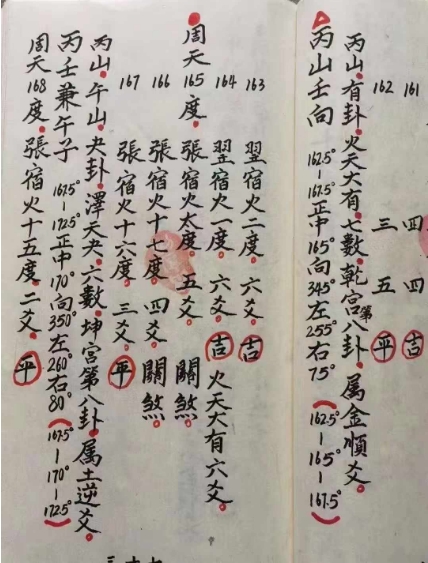 161 四 四 吉
162 三 五 平
丙山.有卦.火天大有.七數.乾宮第八卦.屬金順爻.
丙山壬向 162.5°-167.5°正中165°向345°左255°右75°(162.5°-165°-167.5°)
163 翌宿火二度.六爻.吉
164 翌宿火一度.六爻.吉 火天大有六爻.
周天165度.張宿火太度.五爻.關煞.
166 張宿火十七度.四爻.關煞.
167 張宿火十六度.三爻.平
丙山.午山.夬卦.澤天夬.六數.坤宮第八卦.属土逆爻.
丙壬兼午子 167.5°-172.5°正中170°向350°左260°右80°(167.5°-170°-172.5°)
周天168度.張宿火十五度.二爻.平